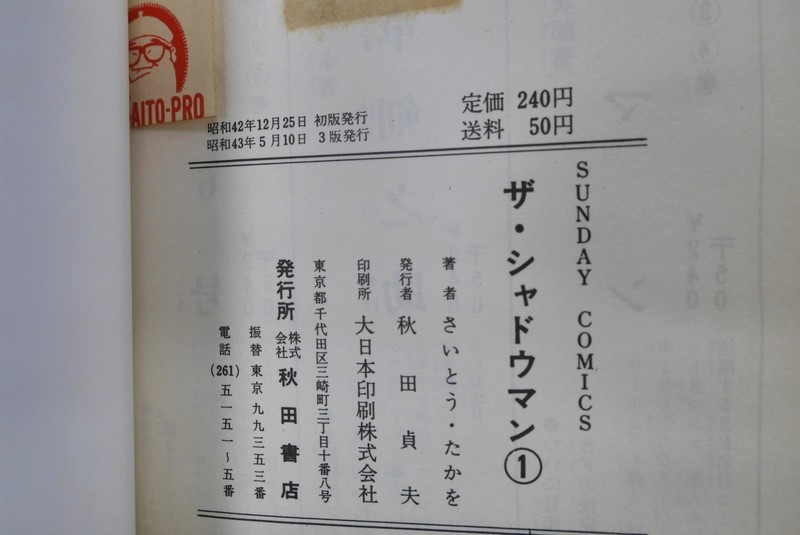 AITO-PRO
昭和42年12月25日 初版発行
昭和43年5月10日 3版発行
定価 240円
送料 50円
SUNDAY COMICS
ザ・シャドウマン①
著者 さいとう・たかを
発行者 秋田貞夫
印刷所 大日本印刷株式会社
東京都千代田区三崎町三丁目十番八号
発行所 株式会社 秋田書店
振替 東京 九九三五三番
電話 (261) 五一五一~五番